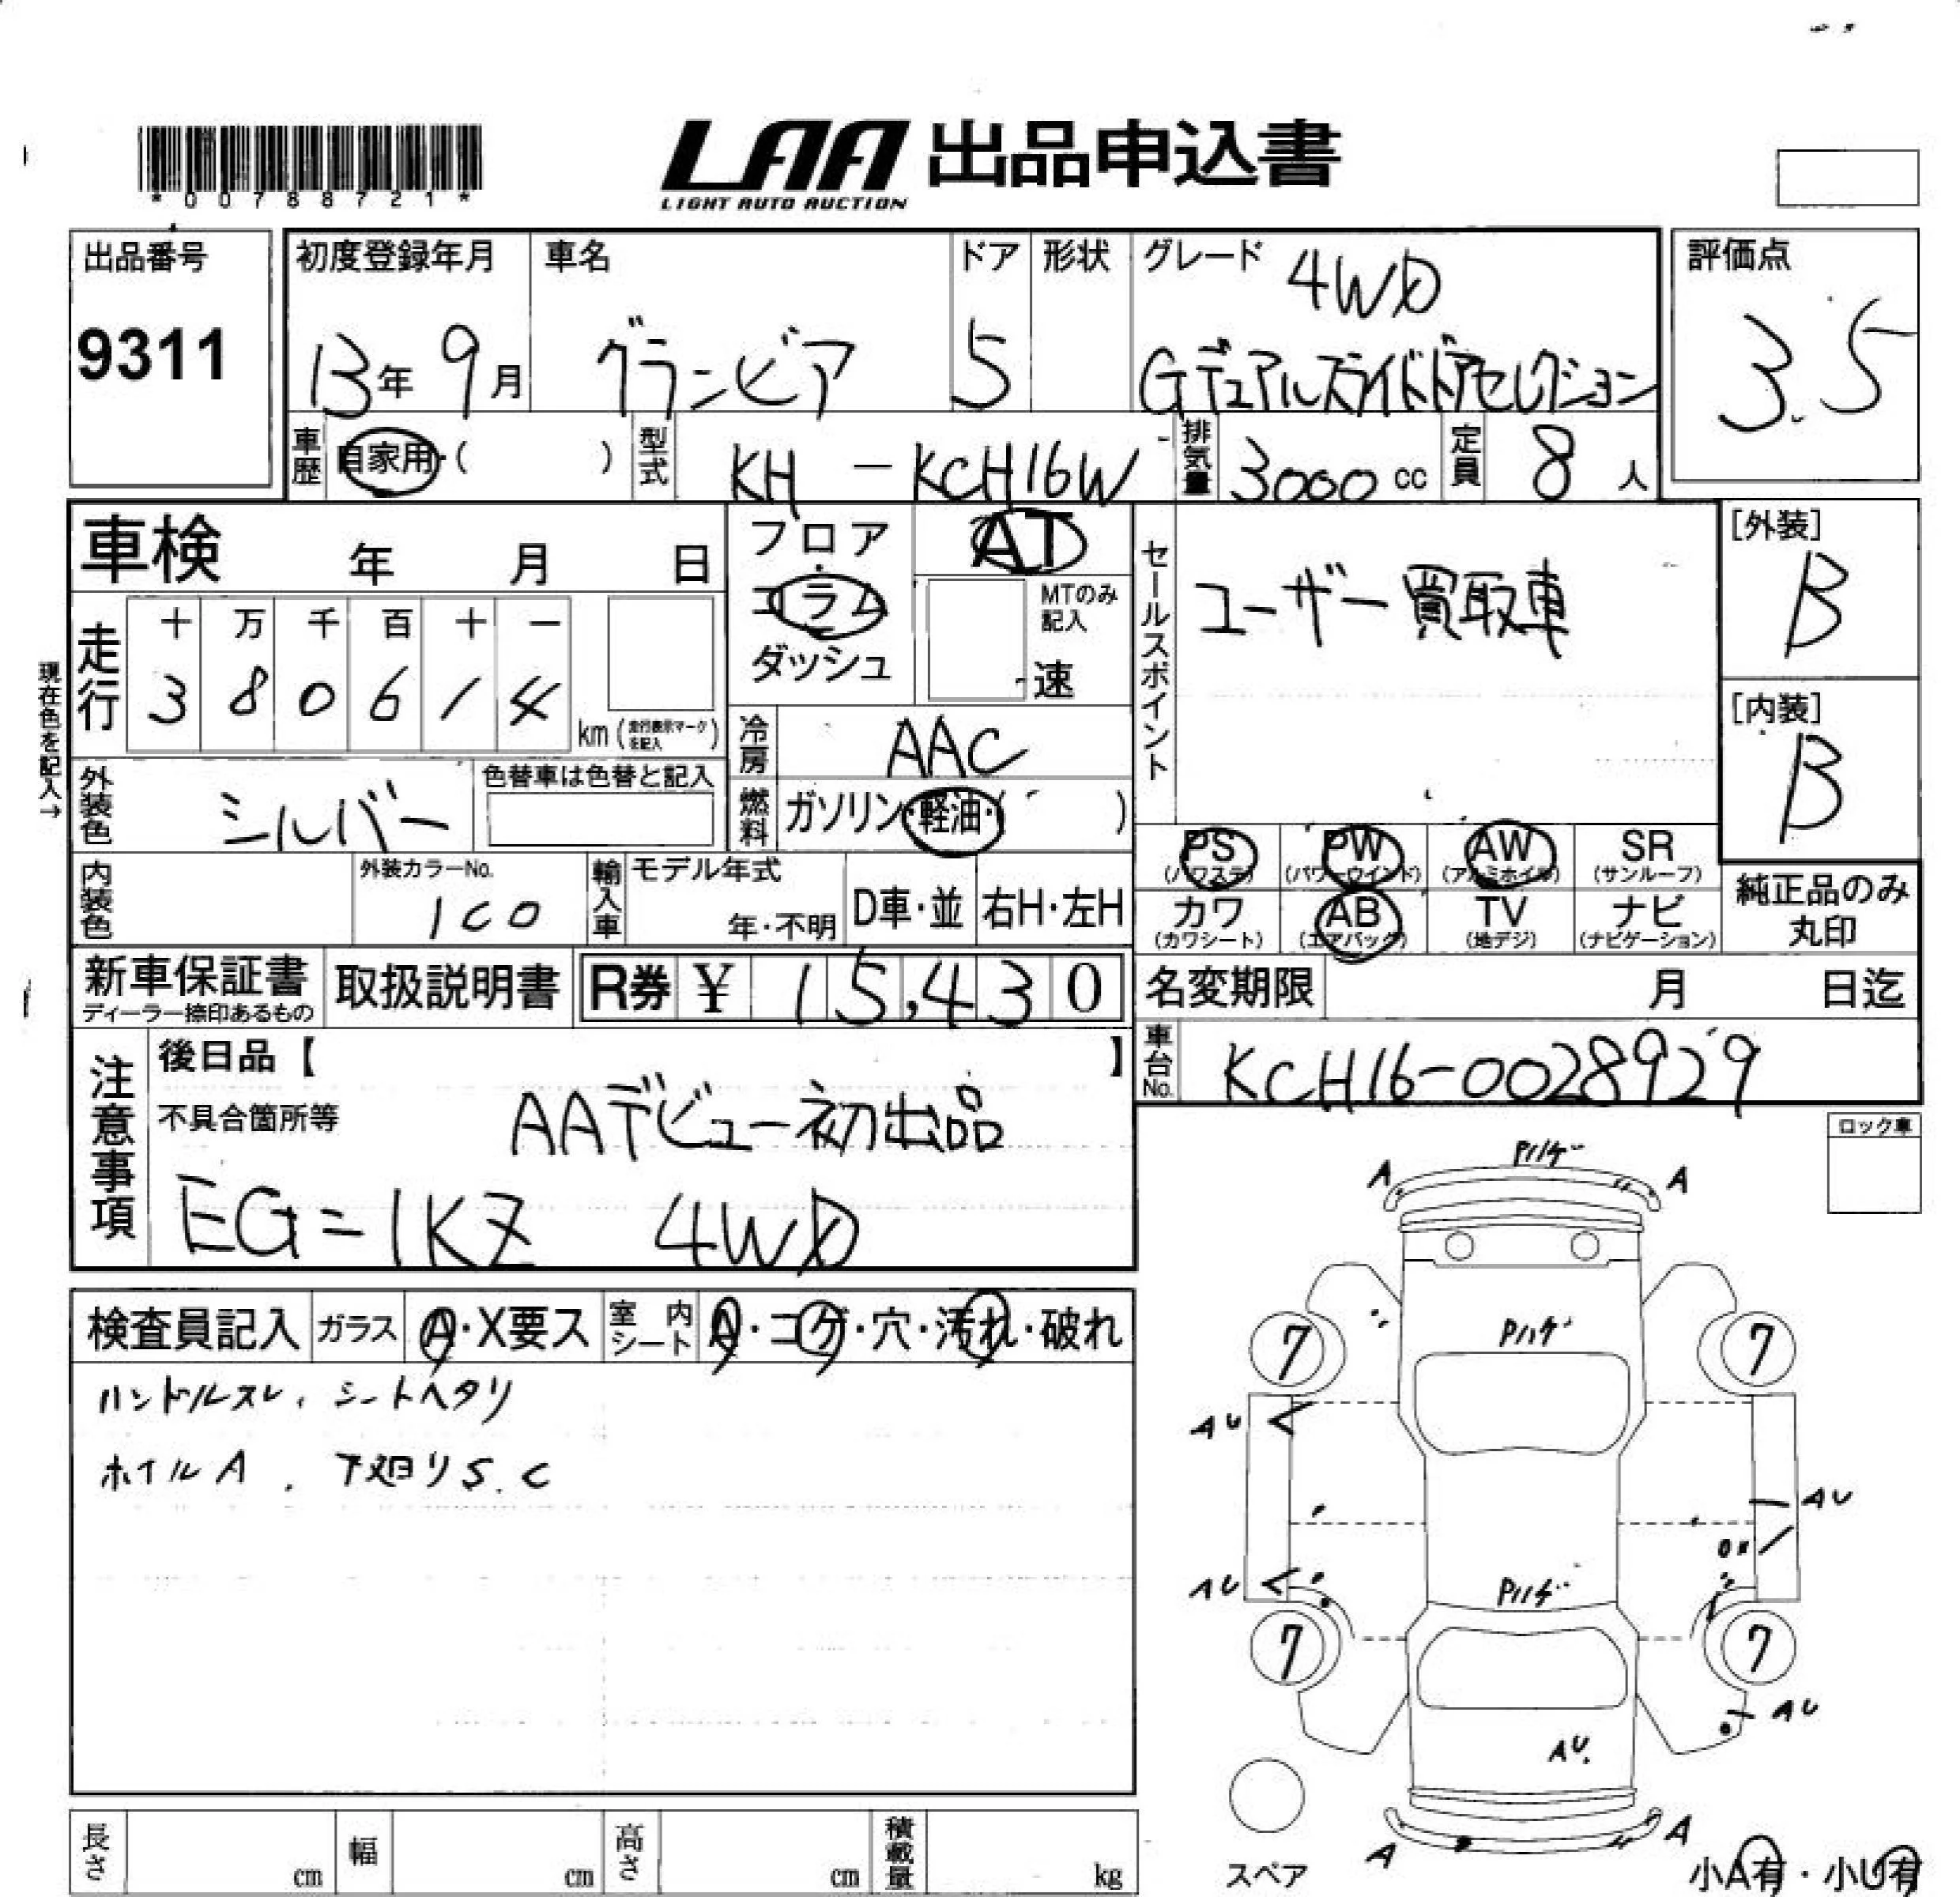 *00788721*
LAA 出品申込書
LIGHT AUTO AUCTION
出品番号
9311
初度登録年月
13年 9月
車名
グランビア
ドア
5
形状
グレード
4WD
Gデュアルスライドドアセレクション
評価点
3.5
車歴
自家用・( )
型式
KH - KCH16W
排気量
3000 cc
定員
8 人
車検 年 月 日
現在色を記入→
走行
十 万 千 百 十 一
3 8 0 6 1 4
km (走行表示マークを記入)
フロア
コラム
ダッシュ
AT
MTのみ
記入
速
セールスポイント
ユーザー買取車
[外装]
B
[内装]
B
冷房
AAC
燃料
ガソリン・軽油・( )
外装色
シルバー
色替車は色替と記入
内装色
外装カラーNo.
1C0
輸入車
モデル年式
年・不明
D車・並
右H・左H
PS PW AW SR
(パワステ) (パワーウインド) (アルミホイル) (サンルーフ)
カワ AB TV ナビ
(カワシート) (エアバック) (地デジ) (ナビゲーション)
純正品のみ
丸印
新車保証書
ディーラー捺印あるもの
取扱説明書
R券 ¥ 15,430
名変期限 月 日迄
車台No.
KCH16-0028929
注意事項
後日品【 】
不具合箇所等
AAデビュー初出品
EG=1KZ 4WD
ロック車
検査員記入
ガラス
A・X要ス
室内
シート
A・コゲ・穴・汚れ・破れ
ハンドルスレ、シートヘタリ
ホイルA、下廻りS.C
Pハゲ
A A
Pハゲ
7 7
AU
AU
AU
Pハゲ
7 7
AU
AU
A
A
スペア
小A有・小U有
長さ cm
幅 cm
高さ cm
積載量 kg